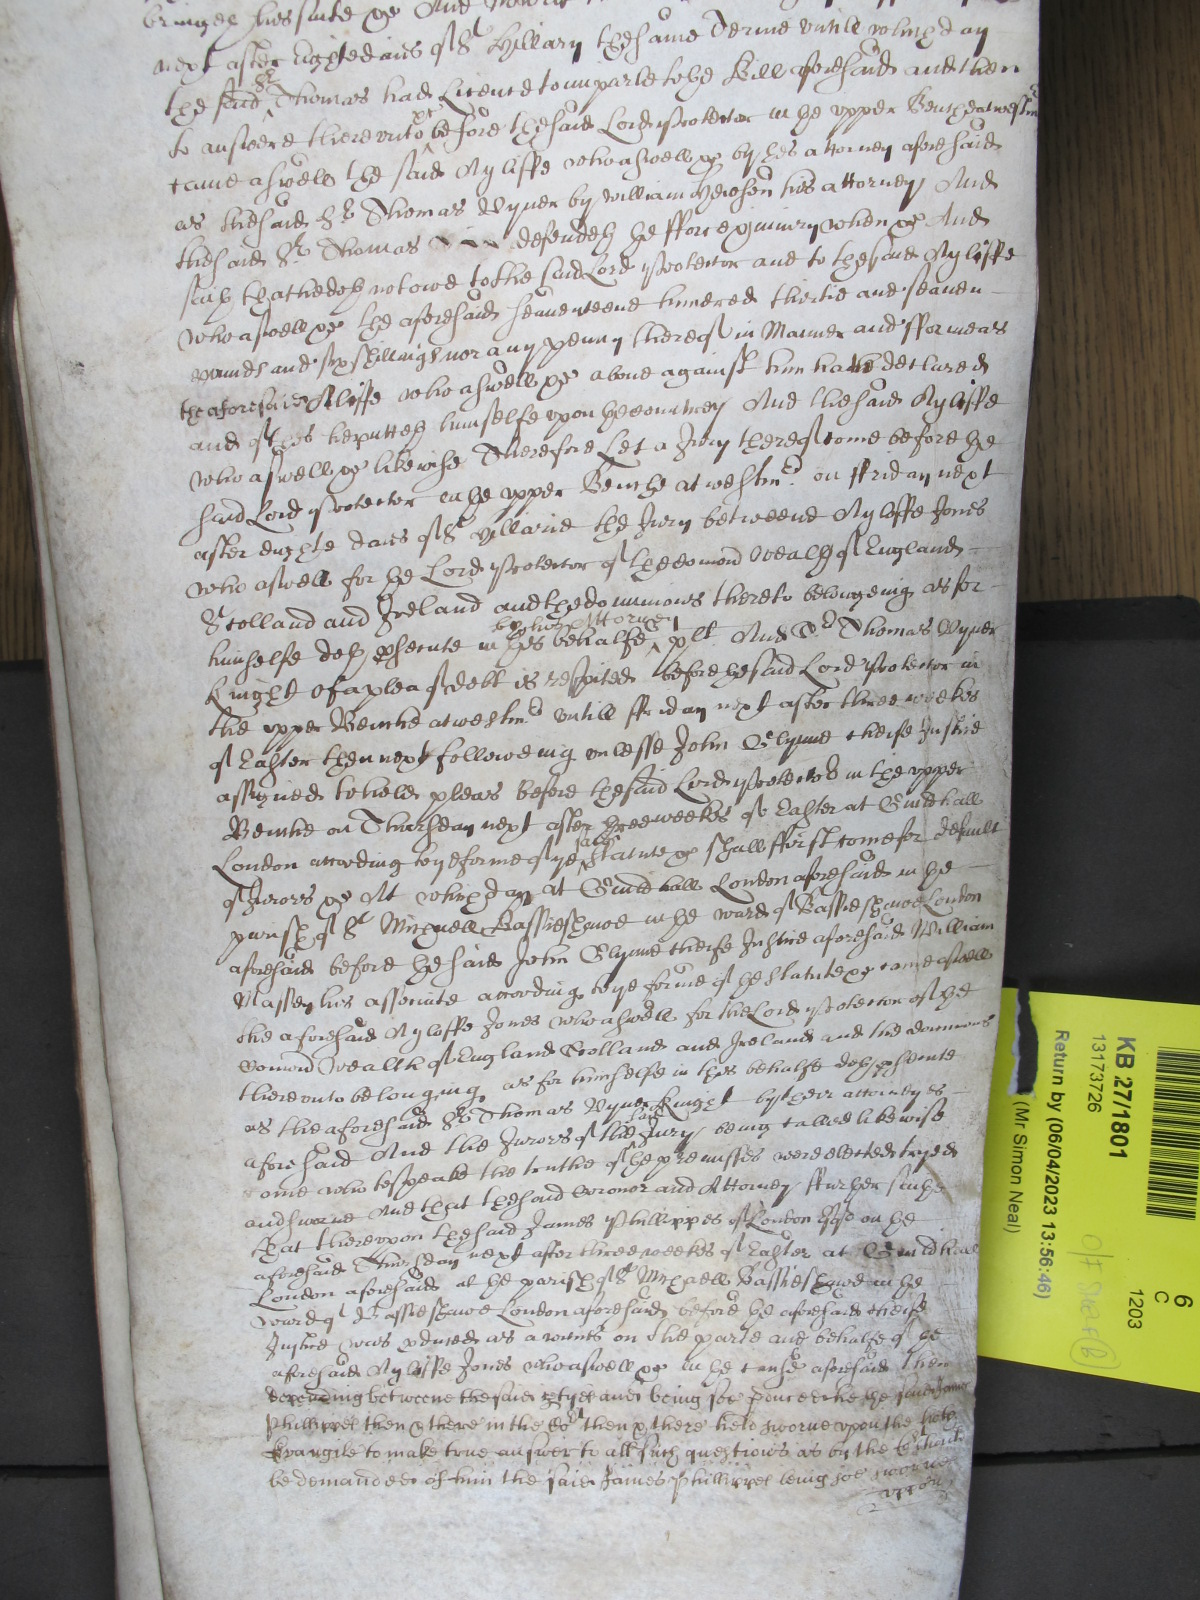 bringeth his suite &c And
next after Eight daies of St Hillary the same Terme untill which day
the said Sr Thomas had Licence to imparle to the Bill aforesaid and then
to answere thereunto &c before the said Lord Protector in the upper Bench at westmr
came aswell the said Ayliffe who aswell &c by his attorney aforesaid
as the said Sr Thomas Vyner by william Hewson his attorney And
the said Sr Thomas defendeth the fforce & iniury when &c And
saith that he doth not owe to the said Lord Protector and to the said Ayliffe
who aswell &c the aforesaid seaventeene hundred thirtie and seaven
pounds and six shillings nor any penny thereof in Manner and fforme as
the aforesaid Aliffe who aswell &c above against him hath declared
and of this he putteth himselfe upon the countrey And the said Ayliffe
who aswell &c likewise Therefore Let a Jury thereof come before the
said Lord Protector in the upper Bench at westmr on ffriday next
after eighte daies of St Hillarie the Jury betweene Ayloffe Jones
who aswell for the Lord Protector of the comon Wealth of England
Scotland and Ireland and the dominions thereto belongeing as for
himselfe doth psecute in this behalfe by his Attorney plt And Sr Thomas Vyner
Knight of a plea of debt is respited before the said Lord Protector in
the upper Bench at westmr untill ffriday next after three weekes
of Easter then next followeing unlesse John Glynne cheife Justice
assigned to hold pleas before the said Lord Protector in the upper
Bench on Thursday next after three weekes of Easter at Guildhall
London according to ye forme of ye said Statute &c shall ffirst come for default
of Jurors &c At which day at Guildhall London aforesaid in the
parish of St Michaell Bassieshawe in the ward of Bassieshawe London
aforesaid before the said John Glynne cheife Justice aforesaid William
Massey his associate according to ye forme of the statute &c came aswell
the aforesaid Ayloffe Jones who aswell for the Lord Protector of the
Comon Wealth of England Scotland and Ireland and the dominions
thereunto belonging as for himselfe in this behalfe doth psecute
as the aforesaid Sr Thomas Vyner Knight by their attorneyes
aforesaid And the Jurors of the said Jury being called likewise
come who to speake the truthe of the premisses were elected tryed
and sworne And that the said Coronor and Attorney ffurther saith
that thereupon the said James Phillippes of London Esq on the
aforesaid Thursday next after three weekes of Easter at Guildhall
London aforesaid at the parish of St Michaell Bassieshawe in the
Ward of Bassieshawe London aforesaid before the aforesaid cheife
Justice was pduced as a wittnes on the parte and behalfe of the
aforesaid Ayloffe Jones who aswell &c in the cause aforesaid then
depending betweene the said ptyes and being soe pduced the said James
Phillippes then & there in the Cort then & there held sworne upon the holy
Evangile to make true answer to all such questions as by the Cort should
be demanded of him the said James Phillippes being soe sworne
upon
KB 27/1801
13173726
Return by (06/04/2023 13:56:46)
(Mr Simon Neal)
6
C
1203